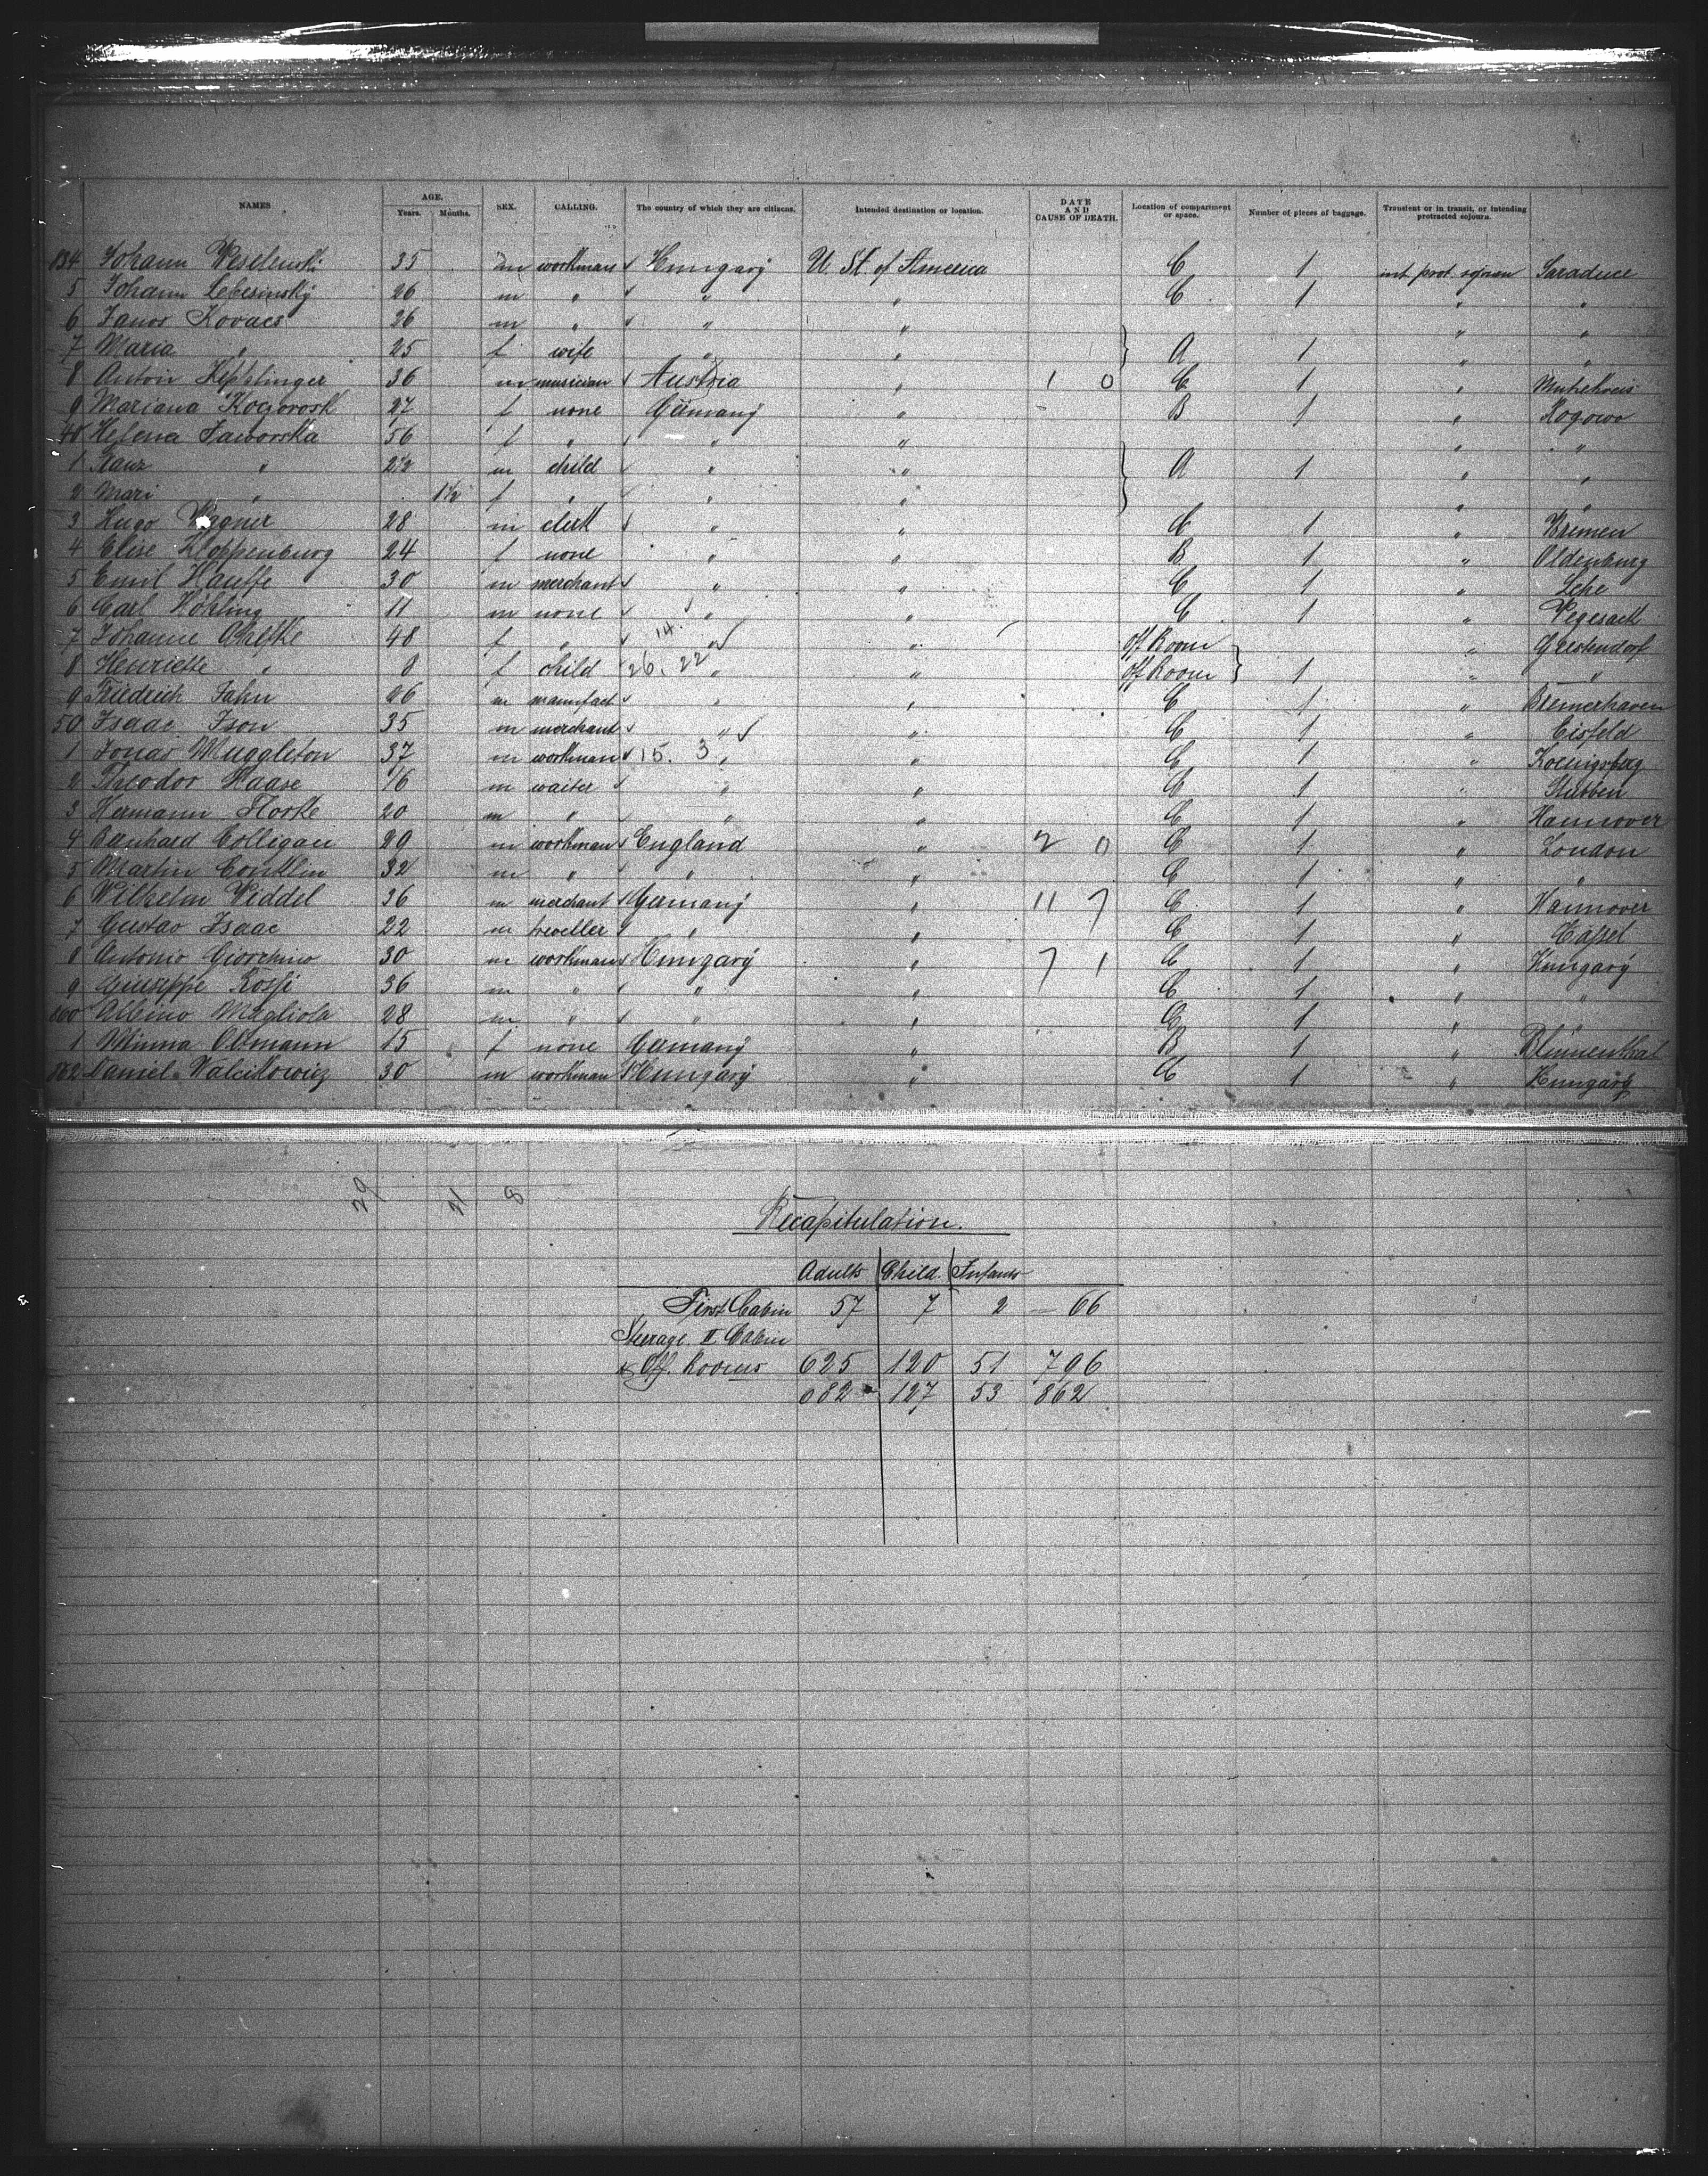 NAMES AGE. Years. Months. SEX. CALLING. The country of which they are citizens. Intended destination or location. DATE AND CAUSE OF DEATH. Location of compartment or space. Number of pieces of baggage. Transient or in transit, or intending protracted sojourn.
834 Johann Weselenski 35 m workman Hungary U. St. of America C 1 int prot. sojourn
5 Johann Lebesinsky 26 m " " " C 1 " "
6 Janos Kovacs 26 m " " " " "
7 Maria " 25 f wife " " A 1 " "
8 Anton Kepplinger 36 m musician Austria " 1 0 C 1 "
9 Mariana 27 f none Germany " B 1 " Rogowo
40 Helena Jaworska 56 f " " " " "
1 Franz " 2½ m child " " A 1 " "
2 Mari " 1½ f " " " " "
3 Hugo Wagner 28 m clerk " " C 1 " Bremen
4 Elise Kloppenburg 24 f none " " B 1 " Oldenburg
5 Emil Hauffe 30 m merchant " " C 1 " Lehe
6 Carl Wöhling 11 m none " " C 1 " Vegesack
7 Johanne 48 f " 14. " " Off Room " Geestendorf
8 Henriette " 8 f child 26. 22 " " Off Room 1 " "
9 Friedrich Jahn 26 m manufact " " C 1 " Bremerhaven
50 Isaac Ison 35 m merchant " " C 1 " Eisfeld
1 Jonas Muggleton 37 m workman 15. 3 " " C 1 " Koenigsberg
2 Theodor Haase 16 m waiter " " C 1 " Stubben
3 Hermann Florke 20 m " " " C 1 " Hannover
4 Bernhard Colligan 29 m workman England " 2 0 C 1 " London
5 Martin Conklin 32 m " " " C 1 " "
6 Wilhelm Weddel 36 m merchant Germany " 11 7 C 1 " Hannover
7 Gustav Isaac 22 m traveller " " C 1 " Cassel
8 Antonio Giorchino 30 m workman Hungary " 7 1 C 1 " Hungary
9 Giuseppe Rossi 36 m " " " C 1 " "
860 Albino Magliola 28 m " " " C 1 " "
1 Minna Oltmann 15 f none Germany " B 1 " Blumenthal
862 Daniel Valcikowicz 30 m workman Hungary " C 1 " Hungary
29 21 8
Recapitulation.
Adults Child. Infants
First Cabin 57 7 2 — 66
Steerage. II. Cabin
& Off. Rooms 625 120 51 796
682 127 53 862